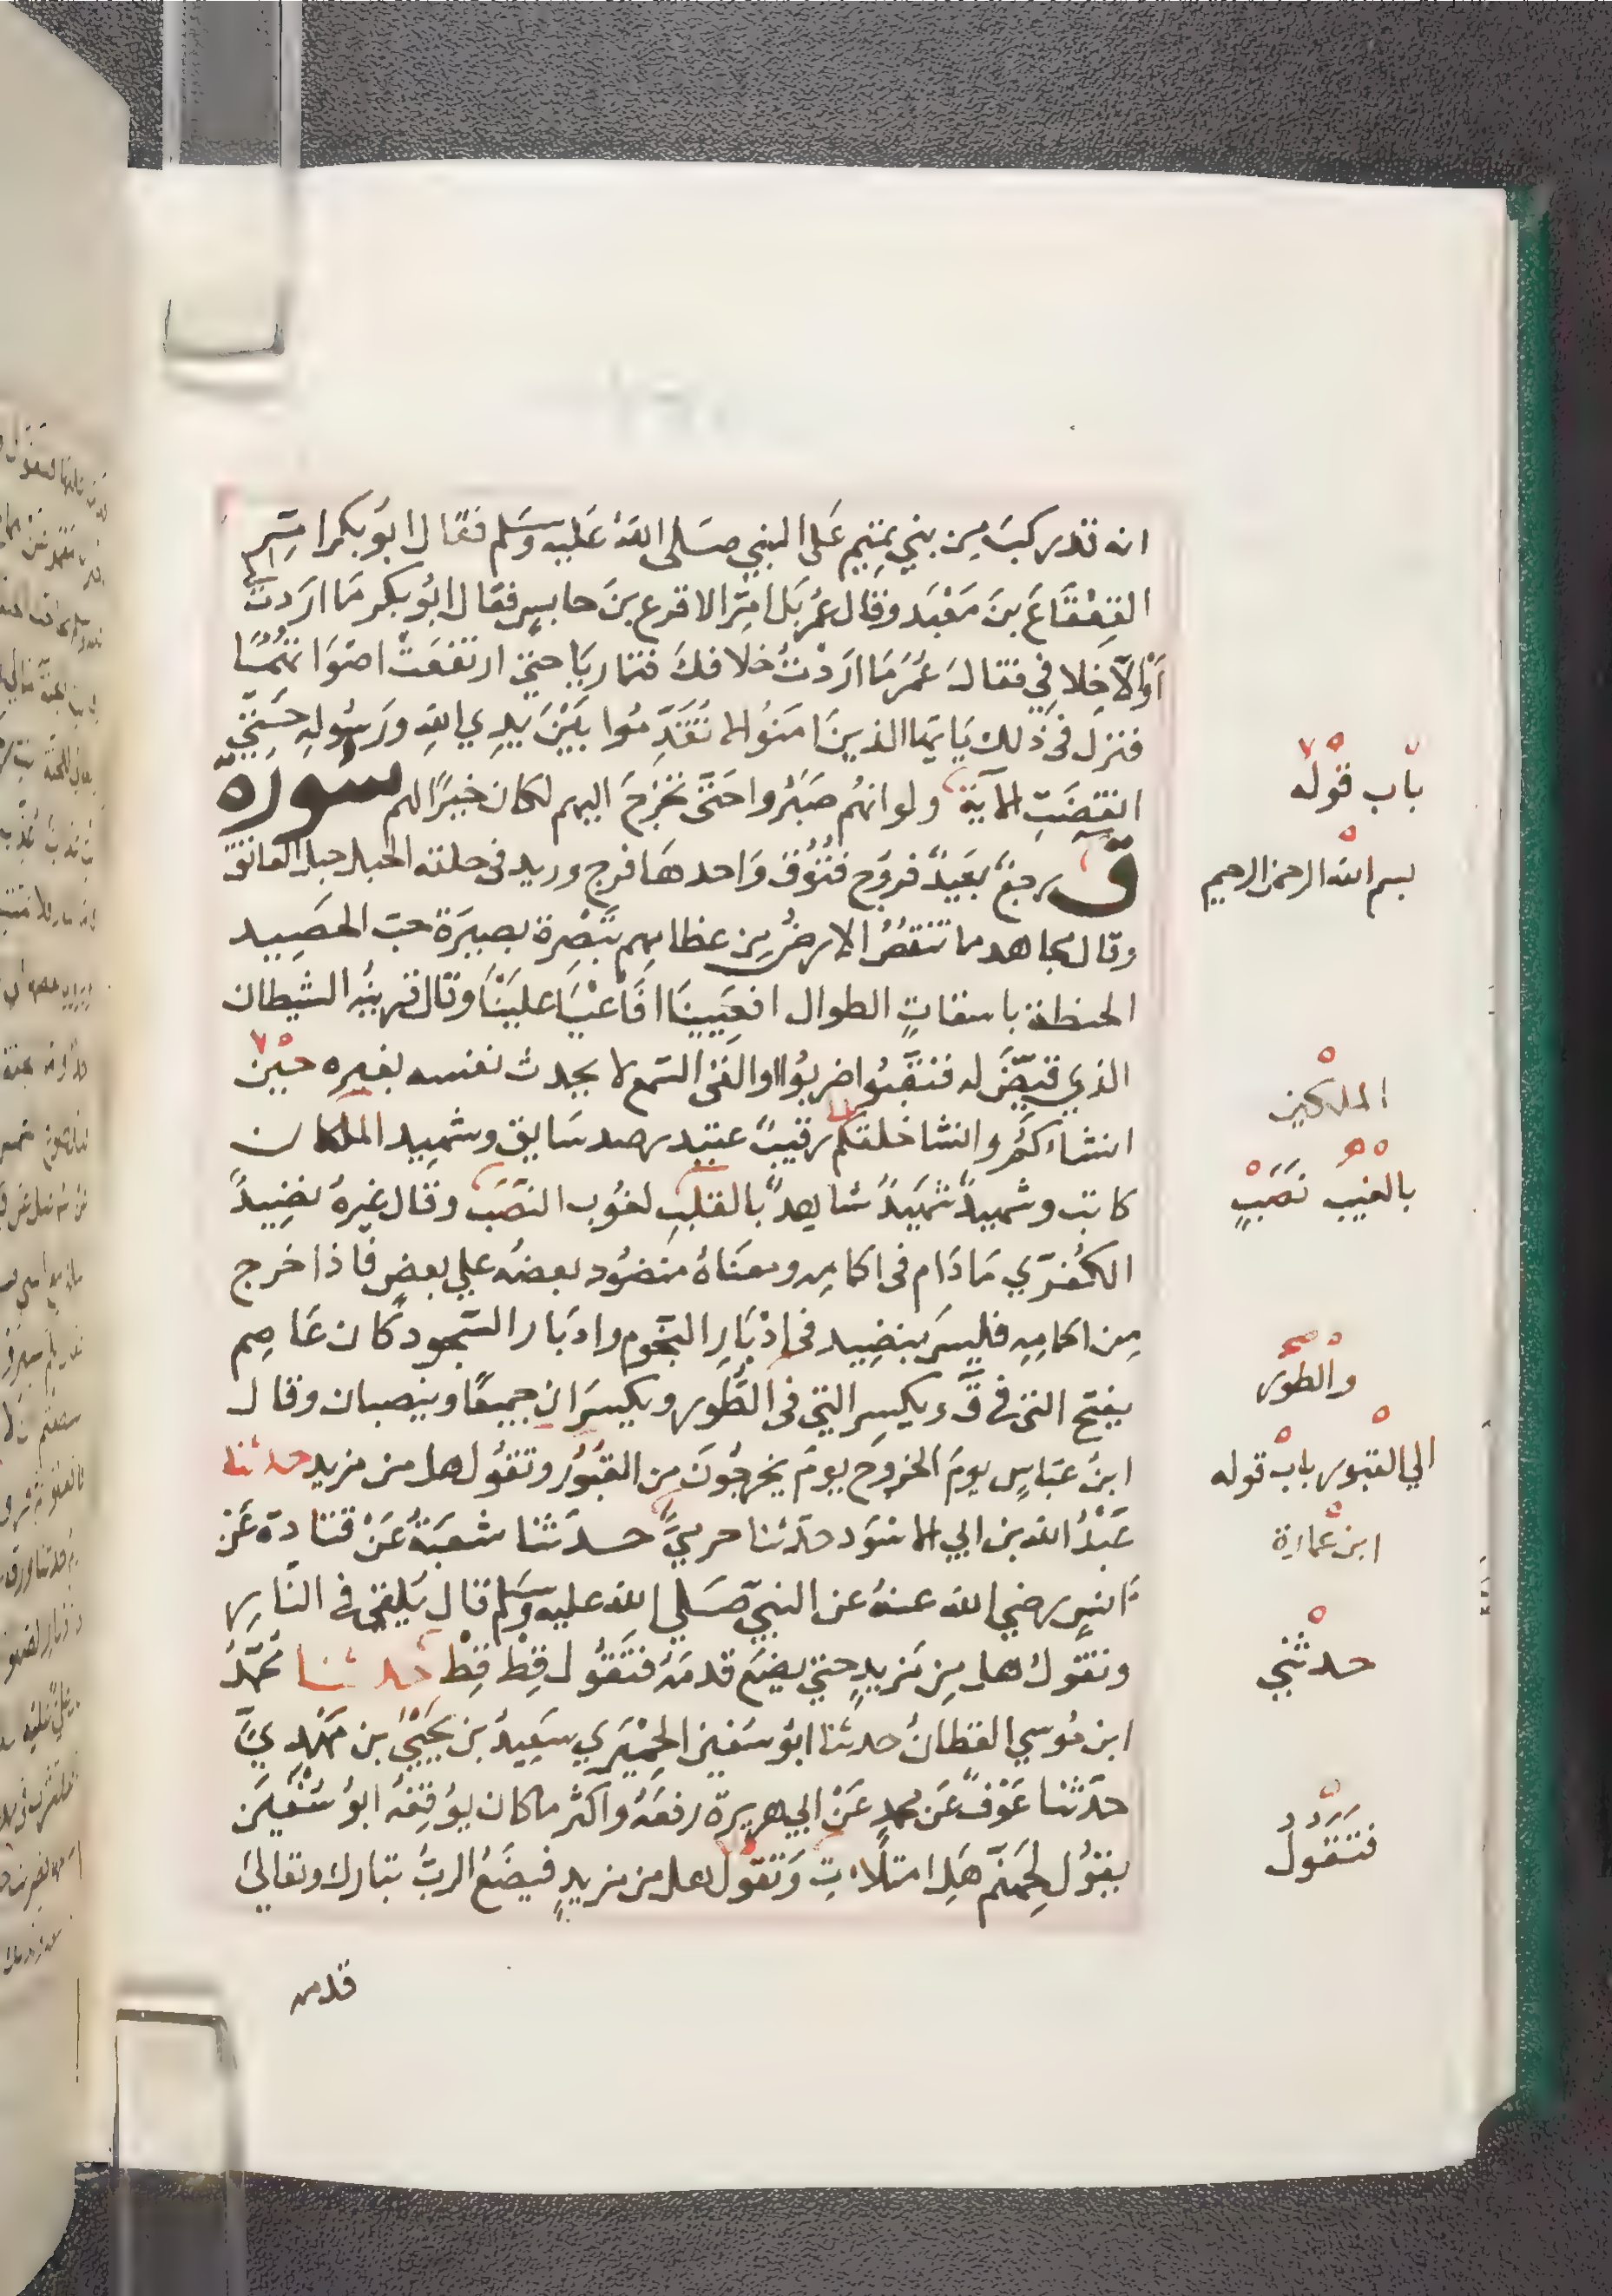 انه قدم ركب من بني تميم على النبي صلى الله عليه وسلم فقال ابو بكر امّر
القعقاع بن معبد وقال عمر بل امّر الاقرع بن حابس فقال ابو بكر ما اردت
أو الا خلافي فقال عمر ما اردت خلافك فتماريا حتى ارتفعت اصواتهما
فنزل في ذلك يا يها الذين امنوا لا تقدموا بين يدي الله ورسوله حتى
انقضت الاية ولو انهم صبروا حتى تخرج اليهم لكان خيرا لهم سورة
ق رجع بعيد فروج فتوق واحدها فرج وريد في حلقه الحبل حبل العاتق
وقال مجاهد ما تنقص الارض من عظامهم تبصرة بصيرة حب الحصيد
الحنطة باسقات الطوال افعيينا افاعيا علينا وقال قرينه الشيطان
الذي قيض له فنقبوا ضربوا او القى السمع لا يحدث نفسه بغيره حين
انشاكم وانشا خلقكم رقيب عتيد رصد سايق وشهيد الملكان
كاتب وشهيد شهيد شاهد بالقلب لغوب النصب وقال غيره نضيد
الكفرى ما دام في اكمامه ومعناه منضود بعضه علي بعض فاذا خرج
من اكمامه فليس بنضيد في ادبار النجوم وادبار السجود كان عاصم
يفتح التي في ق ويكسر التي في الطور ويكسران جميعا وينصبان وقال
ابن عباس يوم الخروج يوم يخرجون من القبور وتقول هل من مزيد حدثنا
عبد الله بن ابي الاسود حدثنا حرمي حدثنا شعبة عن قتادة عن
انس رضي الله عنه عن النبي صلي الله عليه وسلم قال يلقى في النار
وتقول هل من مزيد حتى يضع قدمه فتقول قط قط حدثنا محمد
ابن موسي القطان حدثنا ابو سفين الحميري سعيد بن يحيى بن مهدي
حدثنا عوف عن محمد عن ابي هريرة رفعه واكثر ما كان يوقفه ابو سفين
يقول لجهنم هل امتلات وتقول هل من مزيد فيضع الرب تبارك وتعالى
قدمه
باب قوله
بسم الله الرحمن الرحيم
الملكين
بالغيب نصب
والطور
الي القبور باب قوله
ابن عمارة
حدثني
فتقول